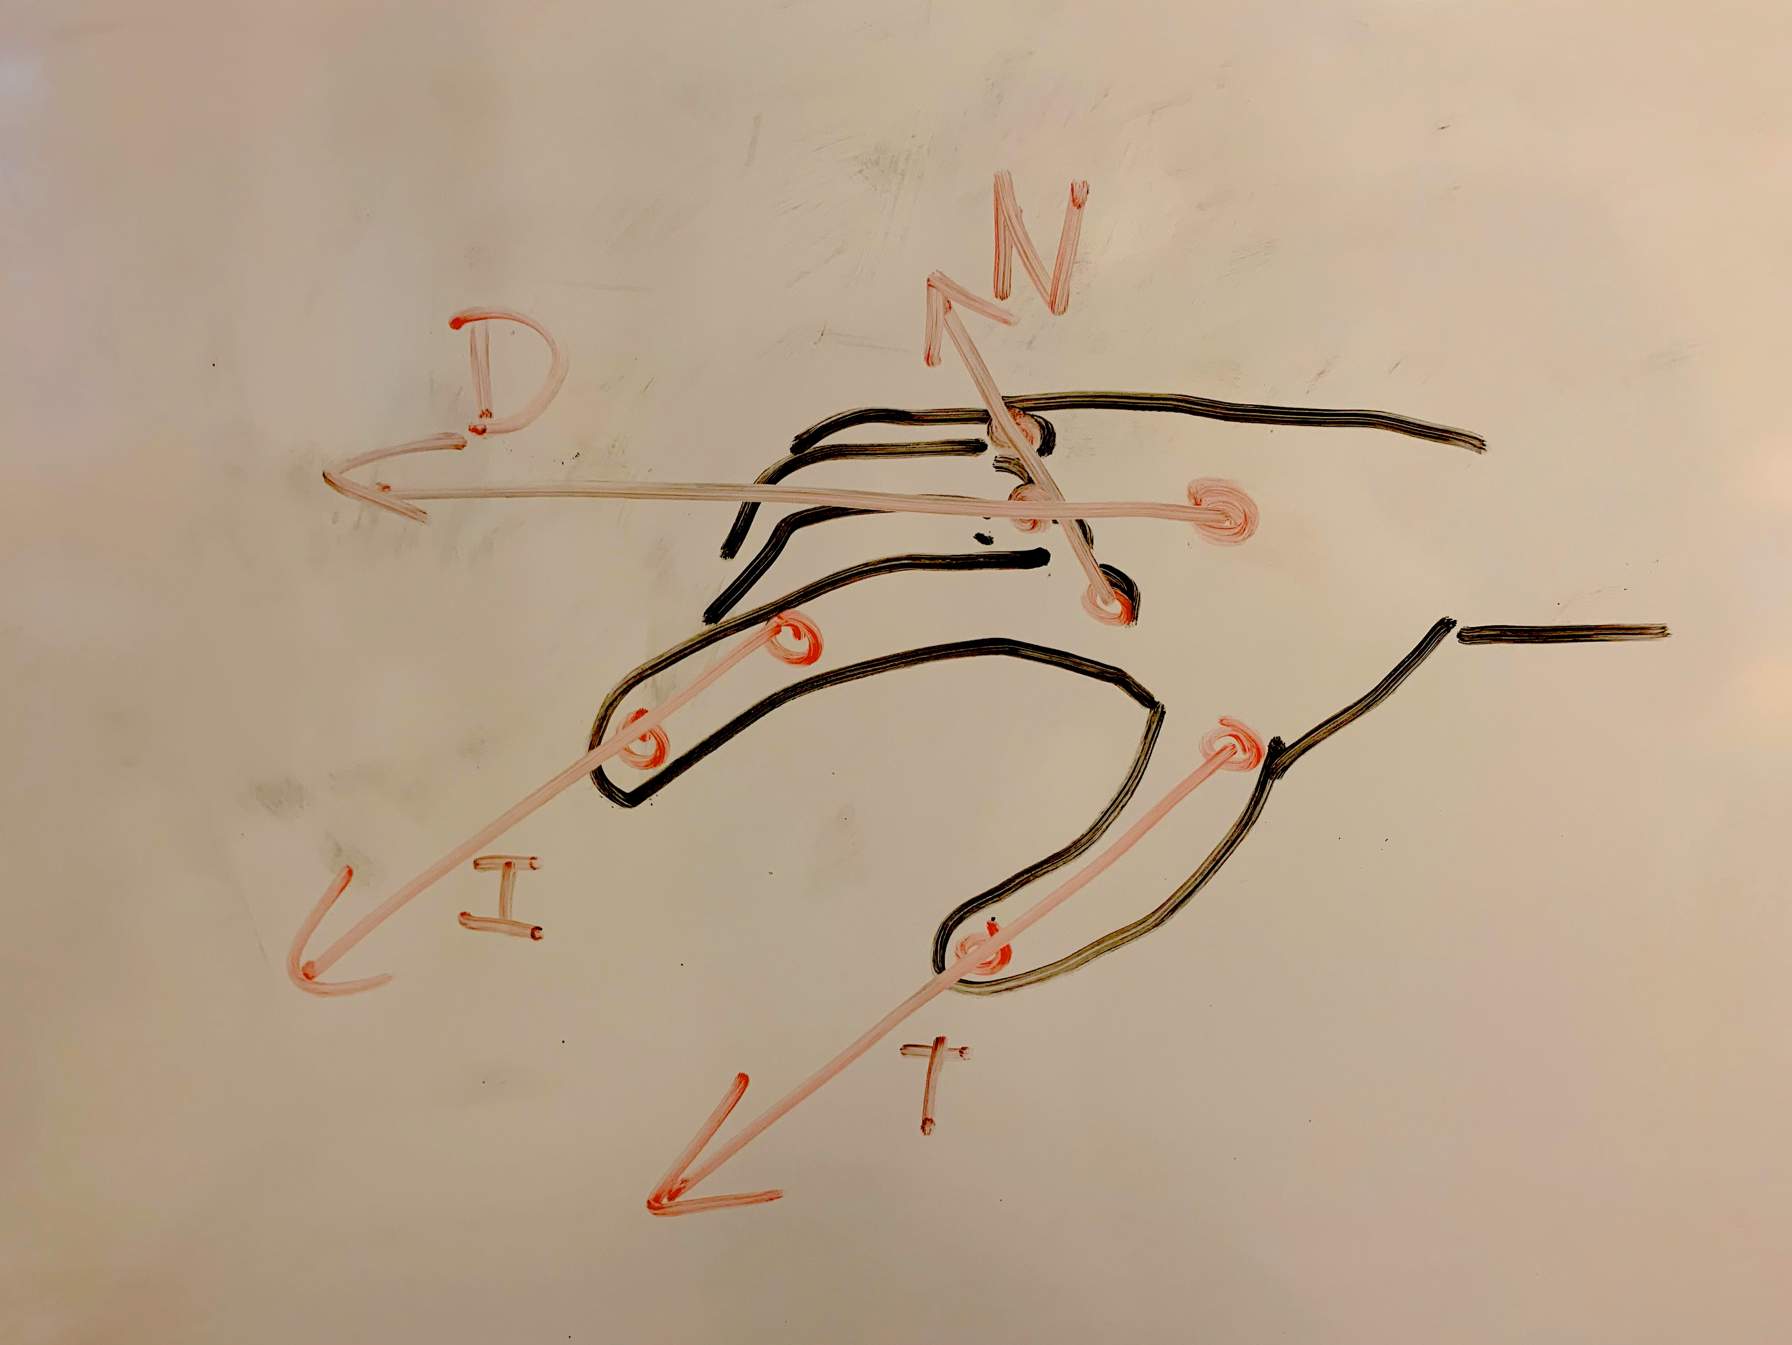 N
D
I
T